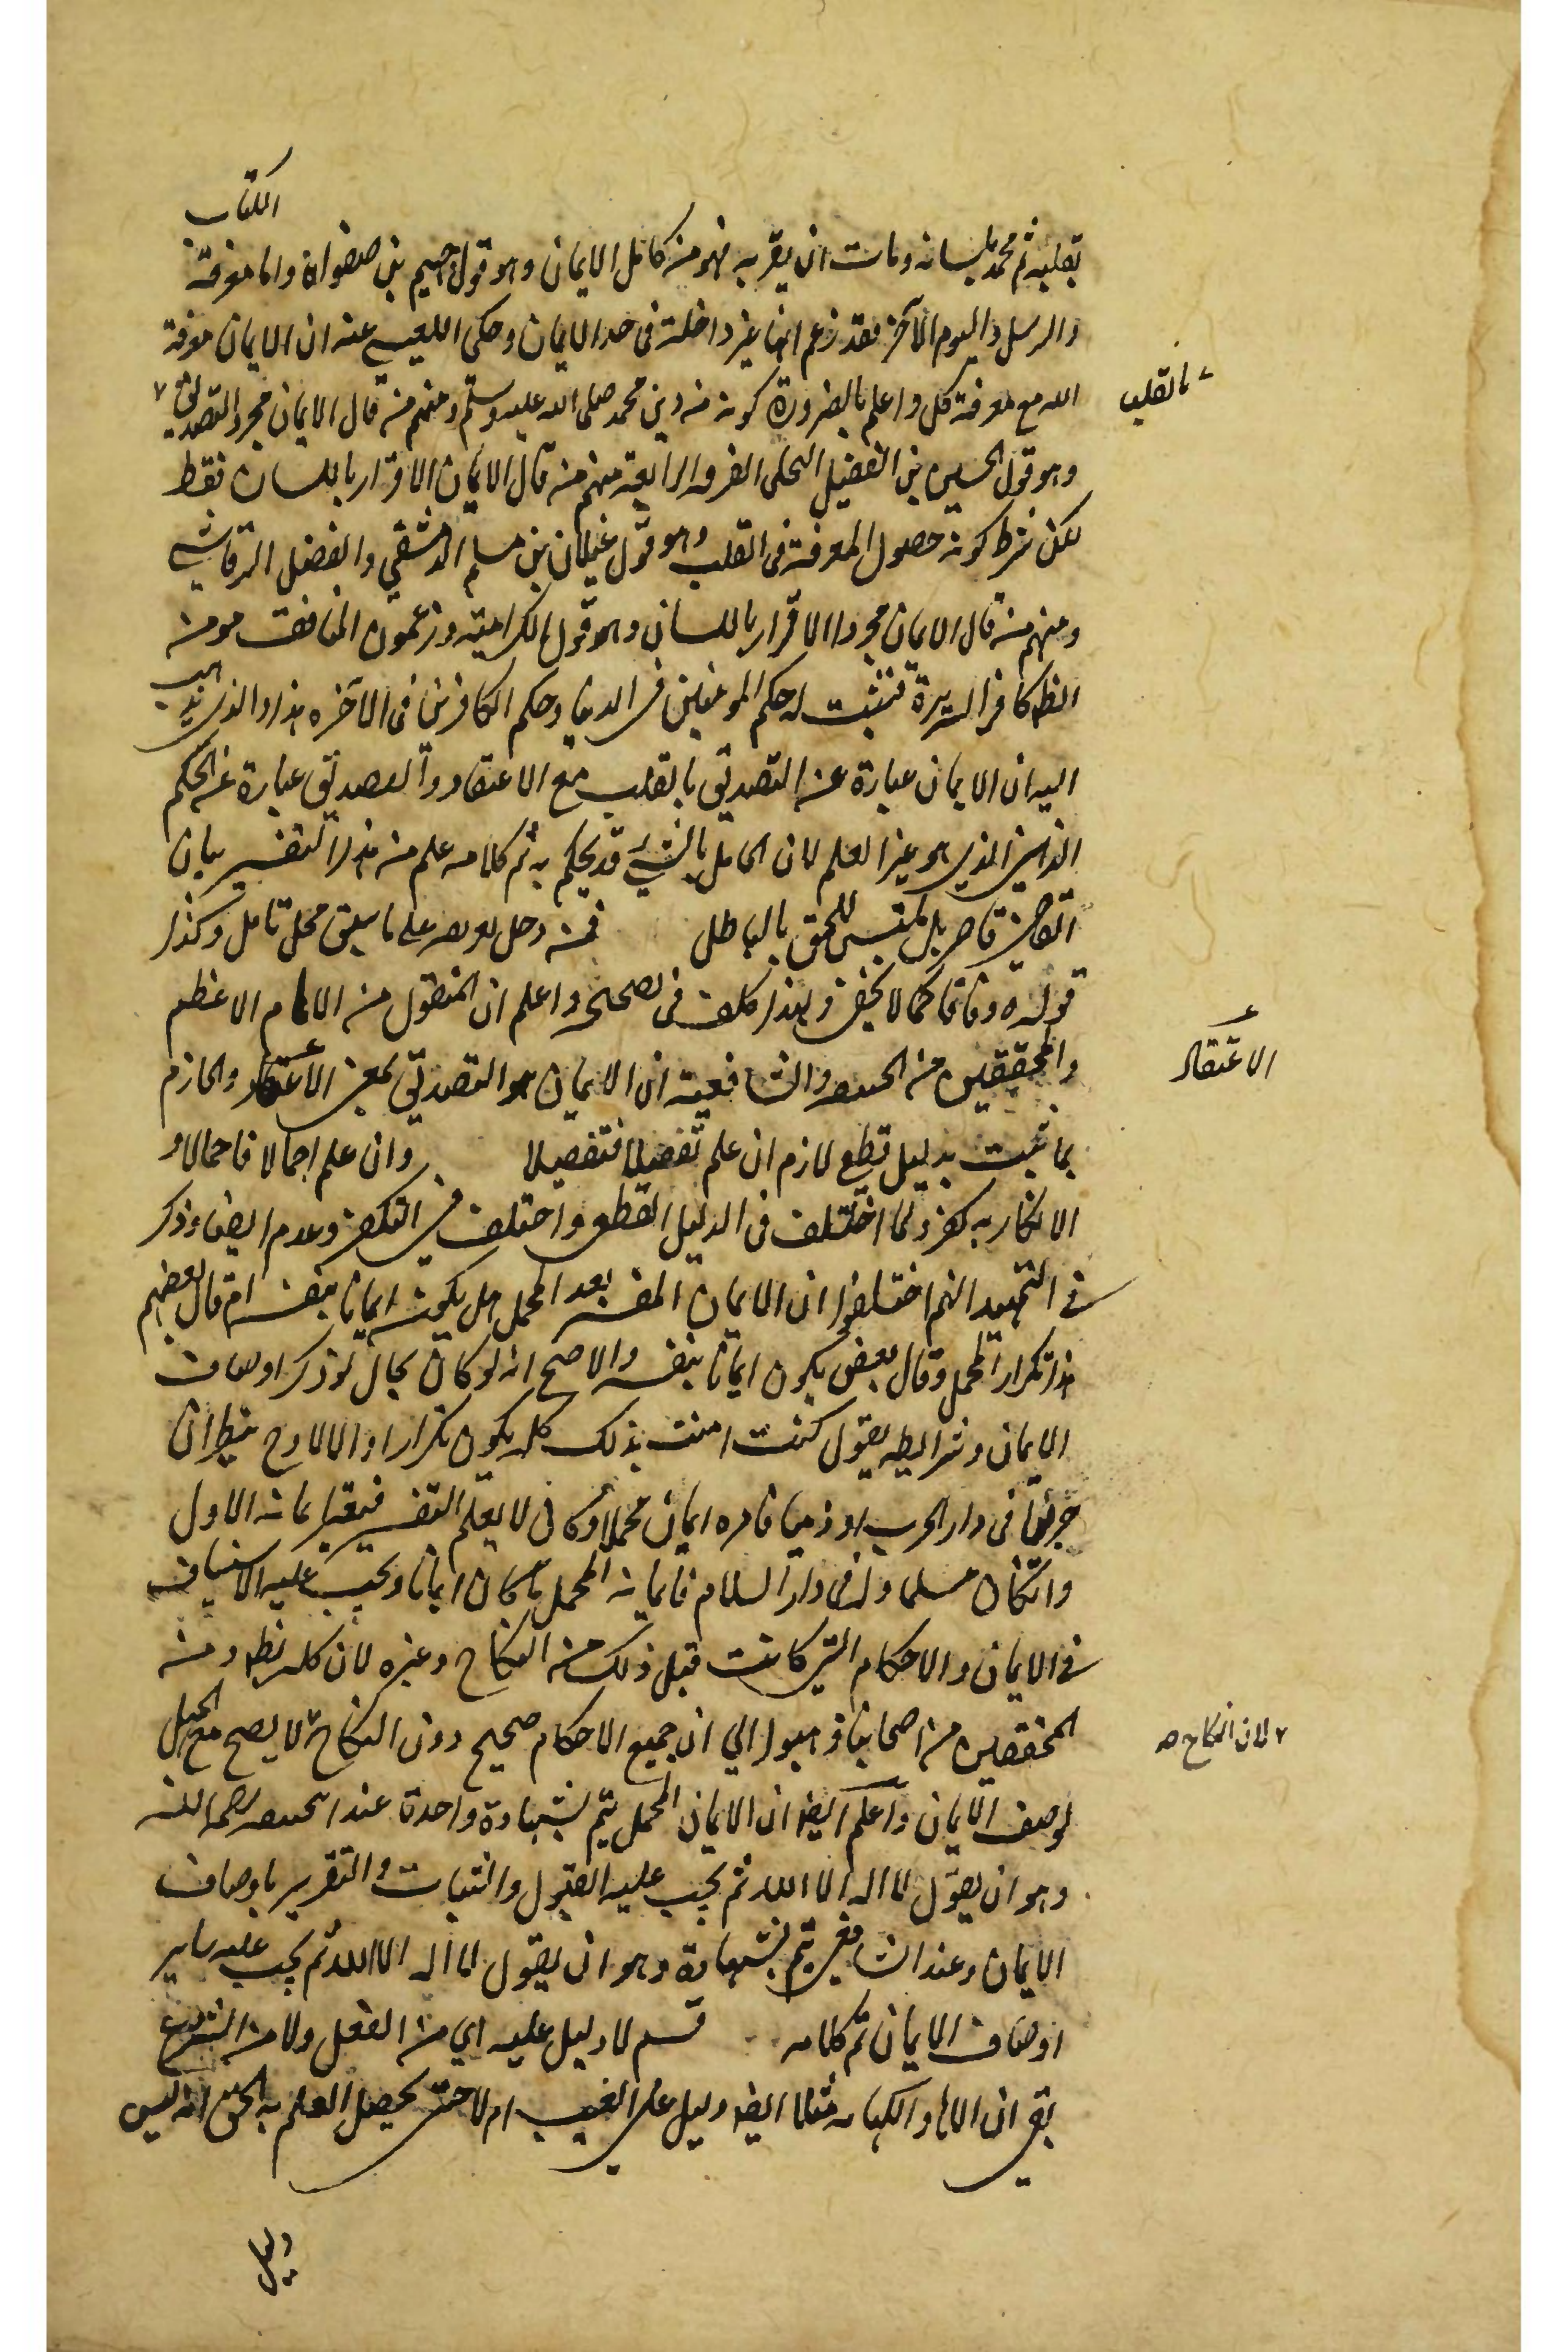 الكتاب
بقلبه ثم محمد بلسانه ومات ان يقر به فهو من كامل الايمان وهو قول جهيم بن صفوان واما معرفة
والرسل واليوم الآخر فقد زعم انها غير داخلة فى حد الايمان وحكى عنه ان الايمان معرفة
الله مع معرفة كل واعلم بالضرورة كونه من دين محمد صلى الله عليه وسلم ومنهم من قال الايمان مجرد التصديق
بالقلب
وهو قول الحسين بن الفضيل البجلى الفرقه الرابعة منهم من قال الايمان الاقرار باللسان فقط
لكن شرط كونه حصول المعرفة فى القلب وهو قول غيلان بن مسلم الدمشقي والفضل الرقاشي
ومنهم من قال الايمان مجرد الاقرار باللسان وهو قول الكرامية وزعموا ان المنافق مومن
الظ كافر السريرة فتثبت له حكم المومنين فى الدنيا وحكم الكافرين فى الآخره هذا والذى يذهب
اليه ان الايمان عبارة عن التصديق بالقلب مع الاعتقاد والتصديق عبارة عن الحكم
الذى هو غير العلم لان الجاهل بالشئ قد يحكم به ثم كلامه علم من هذا التفسير بيان
القاضى قاصر بل ملتبس للحق بالباطل فمنه على ما سبق محل تامل وكذا
قوله وفاتا كما لا يخفى ولهذا كلف فى تصحيحه واعلم ان المنقول من الامام الاعظم
والمحققين من الحنفيه والشافعية ان الايمان هو التصديق بمعنى الاعتقاد والجازم
الاعتقاد
بما ثبت بدليل قطع لازم ان علم تفصيلا فتفصيلا وان علم اجمالا فاجمالا و
الانكار به كفر ولما اختلف فى الدليل القطعى واختلف فى التكفير وعدم ايضا وذكر
فى التمهيد انهم اختلفوا ان الايمان المفسر بعد المجمل هل يكون ايمانا بنفسه ام قال بعضهم
هذا تكرار المجمل وقال بعض يكون ايمانا بنفسه والاصح انه لو كان بحال لو ذكر اوصاف
الايمان وشرايطه يقول كنت امنت بذلك كله يكون تكرارا والا لا وح ينظر ان
حربيا فى دار الحرب او ذميا فامره ايمان مجملا وكان لا يعلم التفسير فيعتبر ايمانه الاول
وان كان مسلما ولد فى دار السلام فايمانه المجمل ما كان ايمانا ويجب عليه الاستيناف
فى الايمان والاحكام التى كانت قبل ذلك من النكاح وغيره لان كله نظر ومن
المحققين من اصحابنا ذهبوا الي ان جميع الاحكام صحيح دون النكاح لا يصح مع الجهل
لان النكاح صه
لوصف الايمان واعلم ايضا ان الايمان المجمل يتم بشهادة واحدة عند ابى حنيفه رحمه الله
وهو ان يقول لا اله الا الله ثم يجب عليه القبول والثبات والتقرير باوصاف
الايمان وعند الشافعى يتم بشهادة وهو ان يقول لا اله الا الله ثم يجب عليه ساير
اوصاف الايمان تم كلامه قسم لا دليل عليه اي من العقل ولا من الشرع
بقى ان الالهام والكهانه مثلا ايضا دليل على الغيب ام لا حتى يحصل العلم به الحق انه ليس
دليل